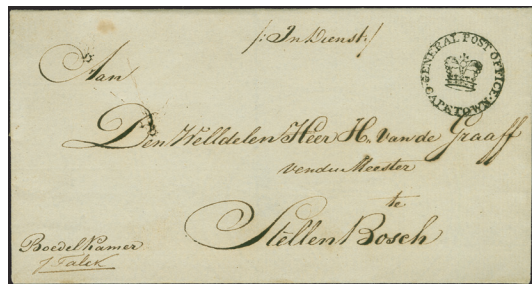 /: In Dienst /
GENERAL POST OFFICE
CAPETOWN
Aan
Den WelEdelen Heer H. van de Graaff
vendu Meester
te
Stellen Bosch
Boedel Kamer